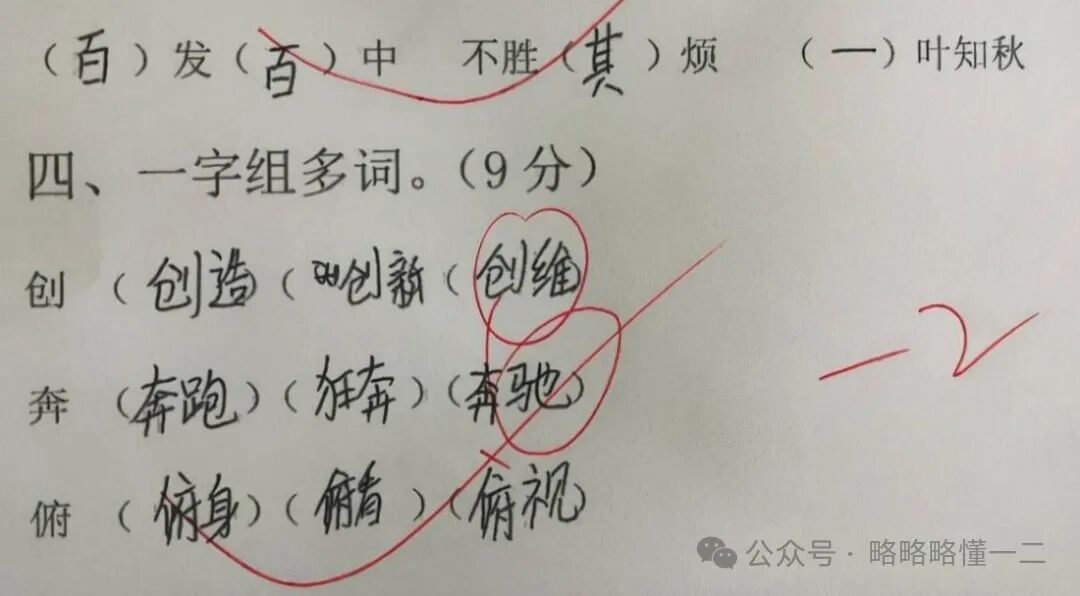 （百）发（百）中 不胜（其）烦 （一）叶知秋
四、一字组多词。（9分）
创（创造（创新（创维
奔（奔跑）（狂奔）（奔驰）
俯（俯身）（俯看）（俯视）
-2
公众号·略略略懂一二